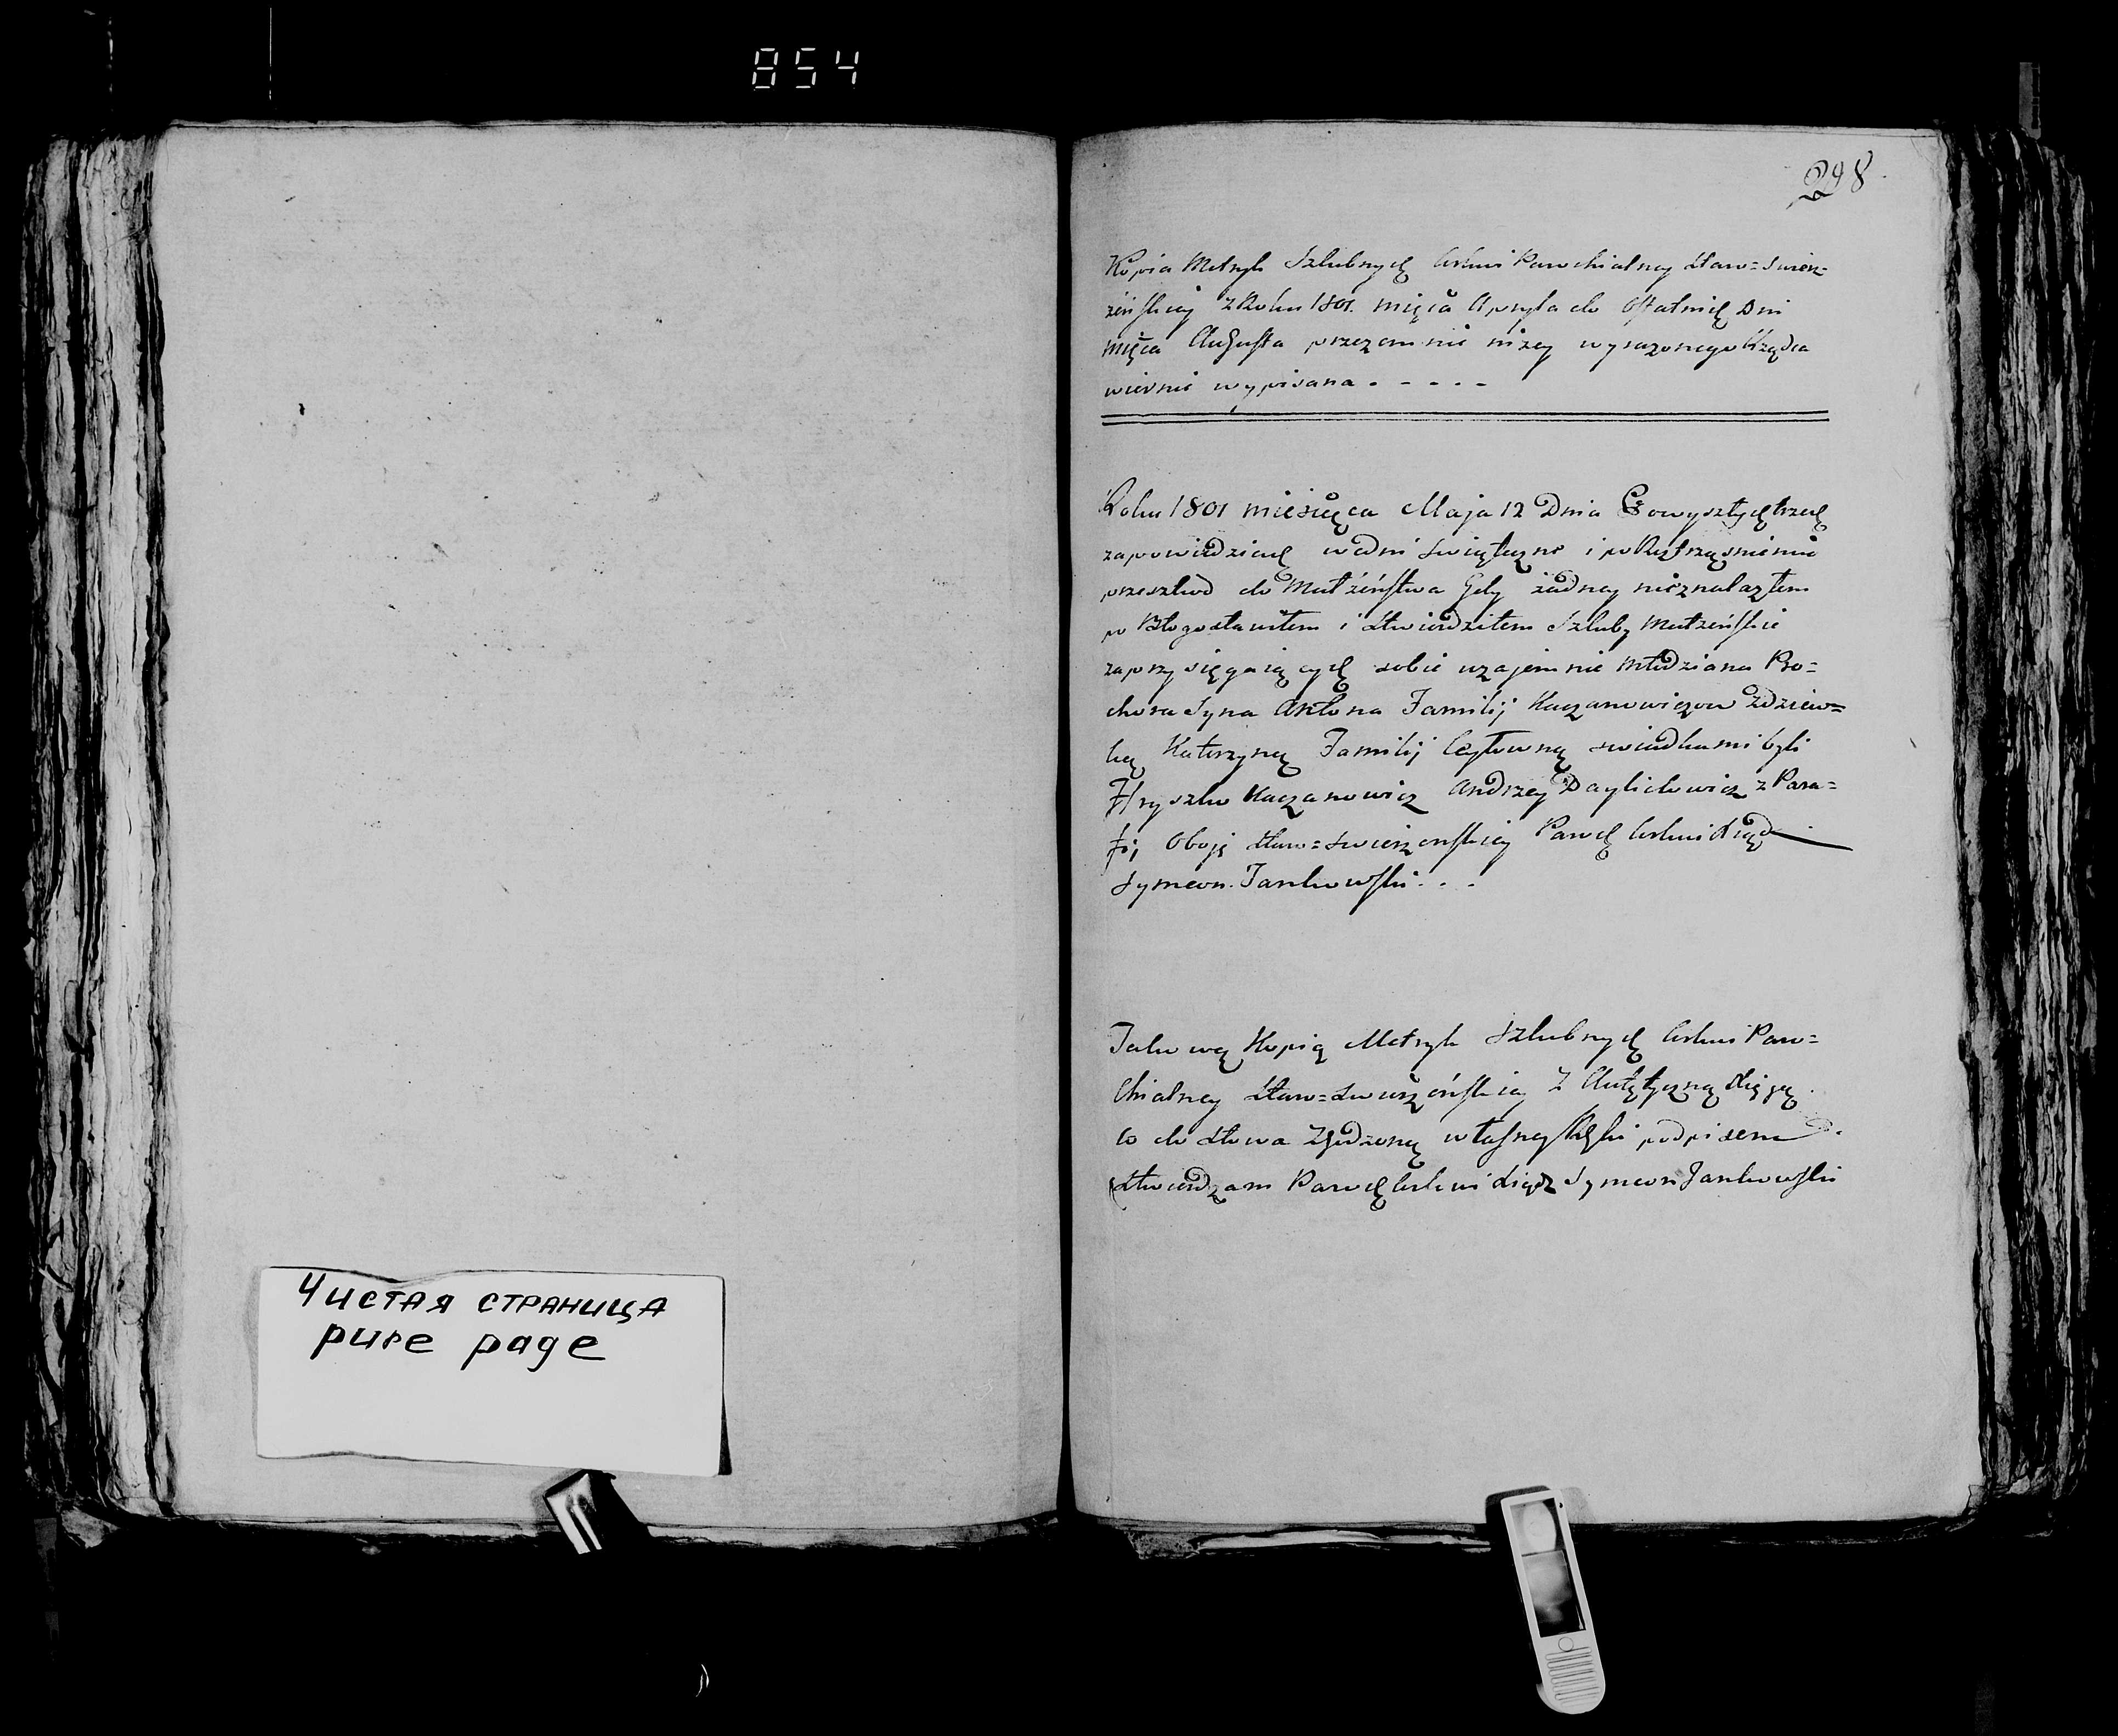 854
298
Kopia Metryk Szlubnych Cerkwi Parochialney Staro=Swierz=
żeńskiey z Roku 1801. mięca Apryla do ostatnich Dni
mięca Augusta przezemnie niżey wyrażonego Rządca
wiernie wypisana . - - - -
Roku 1801 miesięca Maja 12 Dnia Po wyszłych trzech
zapowiedziach w dni Swiąteczne i po Roztrząsnieniu
przeszkod do Małżeństwa Gdy żadney nieznalazłem
po Błogosławiłem i Stwierdziłem Szluby Małżeńskie
zaprzysięgaiących sobie wzajemnie Młodziana Pro=
chora Syna Antona Familij Kaczanowiczow z Dziew=
ką Katerzyną Familij swiadkami byli
Hryszko Kaczanowicz Andrzey Daylidowicz z Para=
fij Oboje Staro=Swierzenskiey Paroch Cerkwi Xiądz
Symeon Jankowski . . .
Takową Kopią Metryk Szlubnych Cerkwi Paro=
Chialney Staro=Swierżeńskiey z Autętyczną Xięgą
Co do Słowa Zgodzoną własney Ręki podpisem
Stwierdzam Paroch Cerkwi Xiądz Symeon Jankowski
Чистая страница
pure page